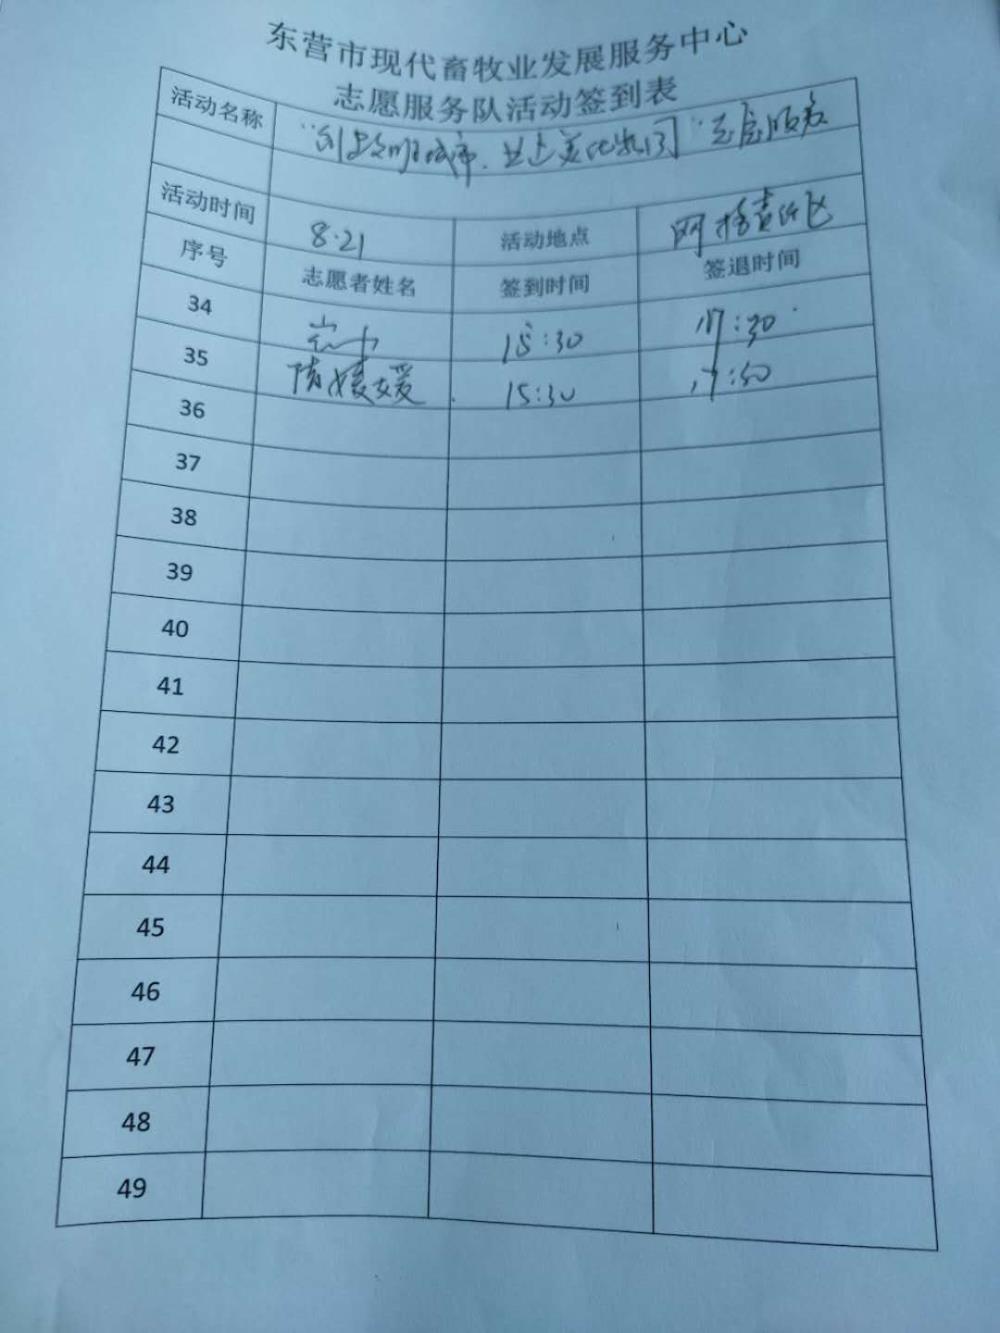 东营市现代畜牧业发展服务中心
志愿服务队活动签到表
活动名称 "创建文明城市、 志愿服务
活动时间 8.21 活动地点 网格责任区
序号 志愿者姓名 签到时间 签退时间
34 15:30 17:30
35 隋媛媛 15:30 17:30
36
37
38
39
40
41
42
43
44
45
46
47
48
49